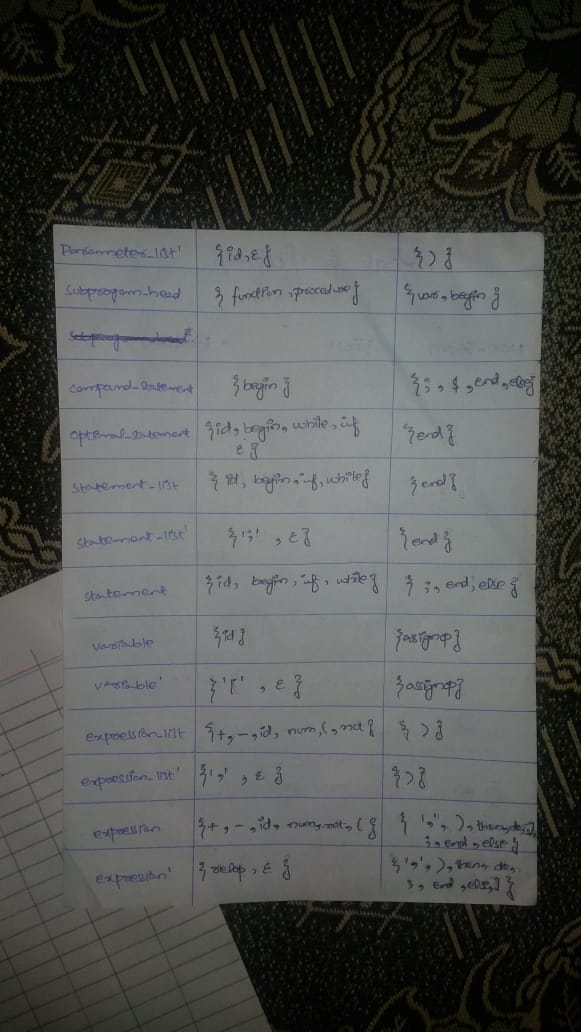 Parammeters_list' {id, ε} { ) }
Subprogam_head { function, procedure} {var, begin }
compound-statement {begin } { ; , $ , end, else}
optional_statement {id, begin, while, if {end }
ε }
statement_list { id, begin, if, while} { end }
statement-list' { ';' , ε } { end }
statement {id, begin, if, while } { ;, end, else }
variable {id} {assignop}
variable' { '[' , ε } {assignop}
expression_list {+, -, id, num, (, not } { ) }
expression_list' { ',' , ε } { ) }
expression {+, -, id, num, not, ( } { ',', ), then, do, ],
; , end, else }
expression' { relop, ε } { ',', ), then, do,
; , end, else, ] }